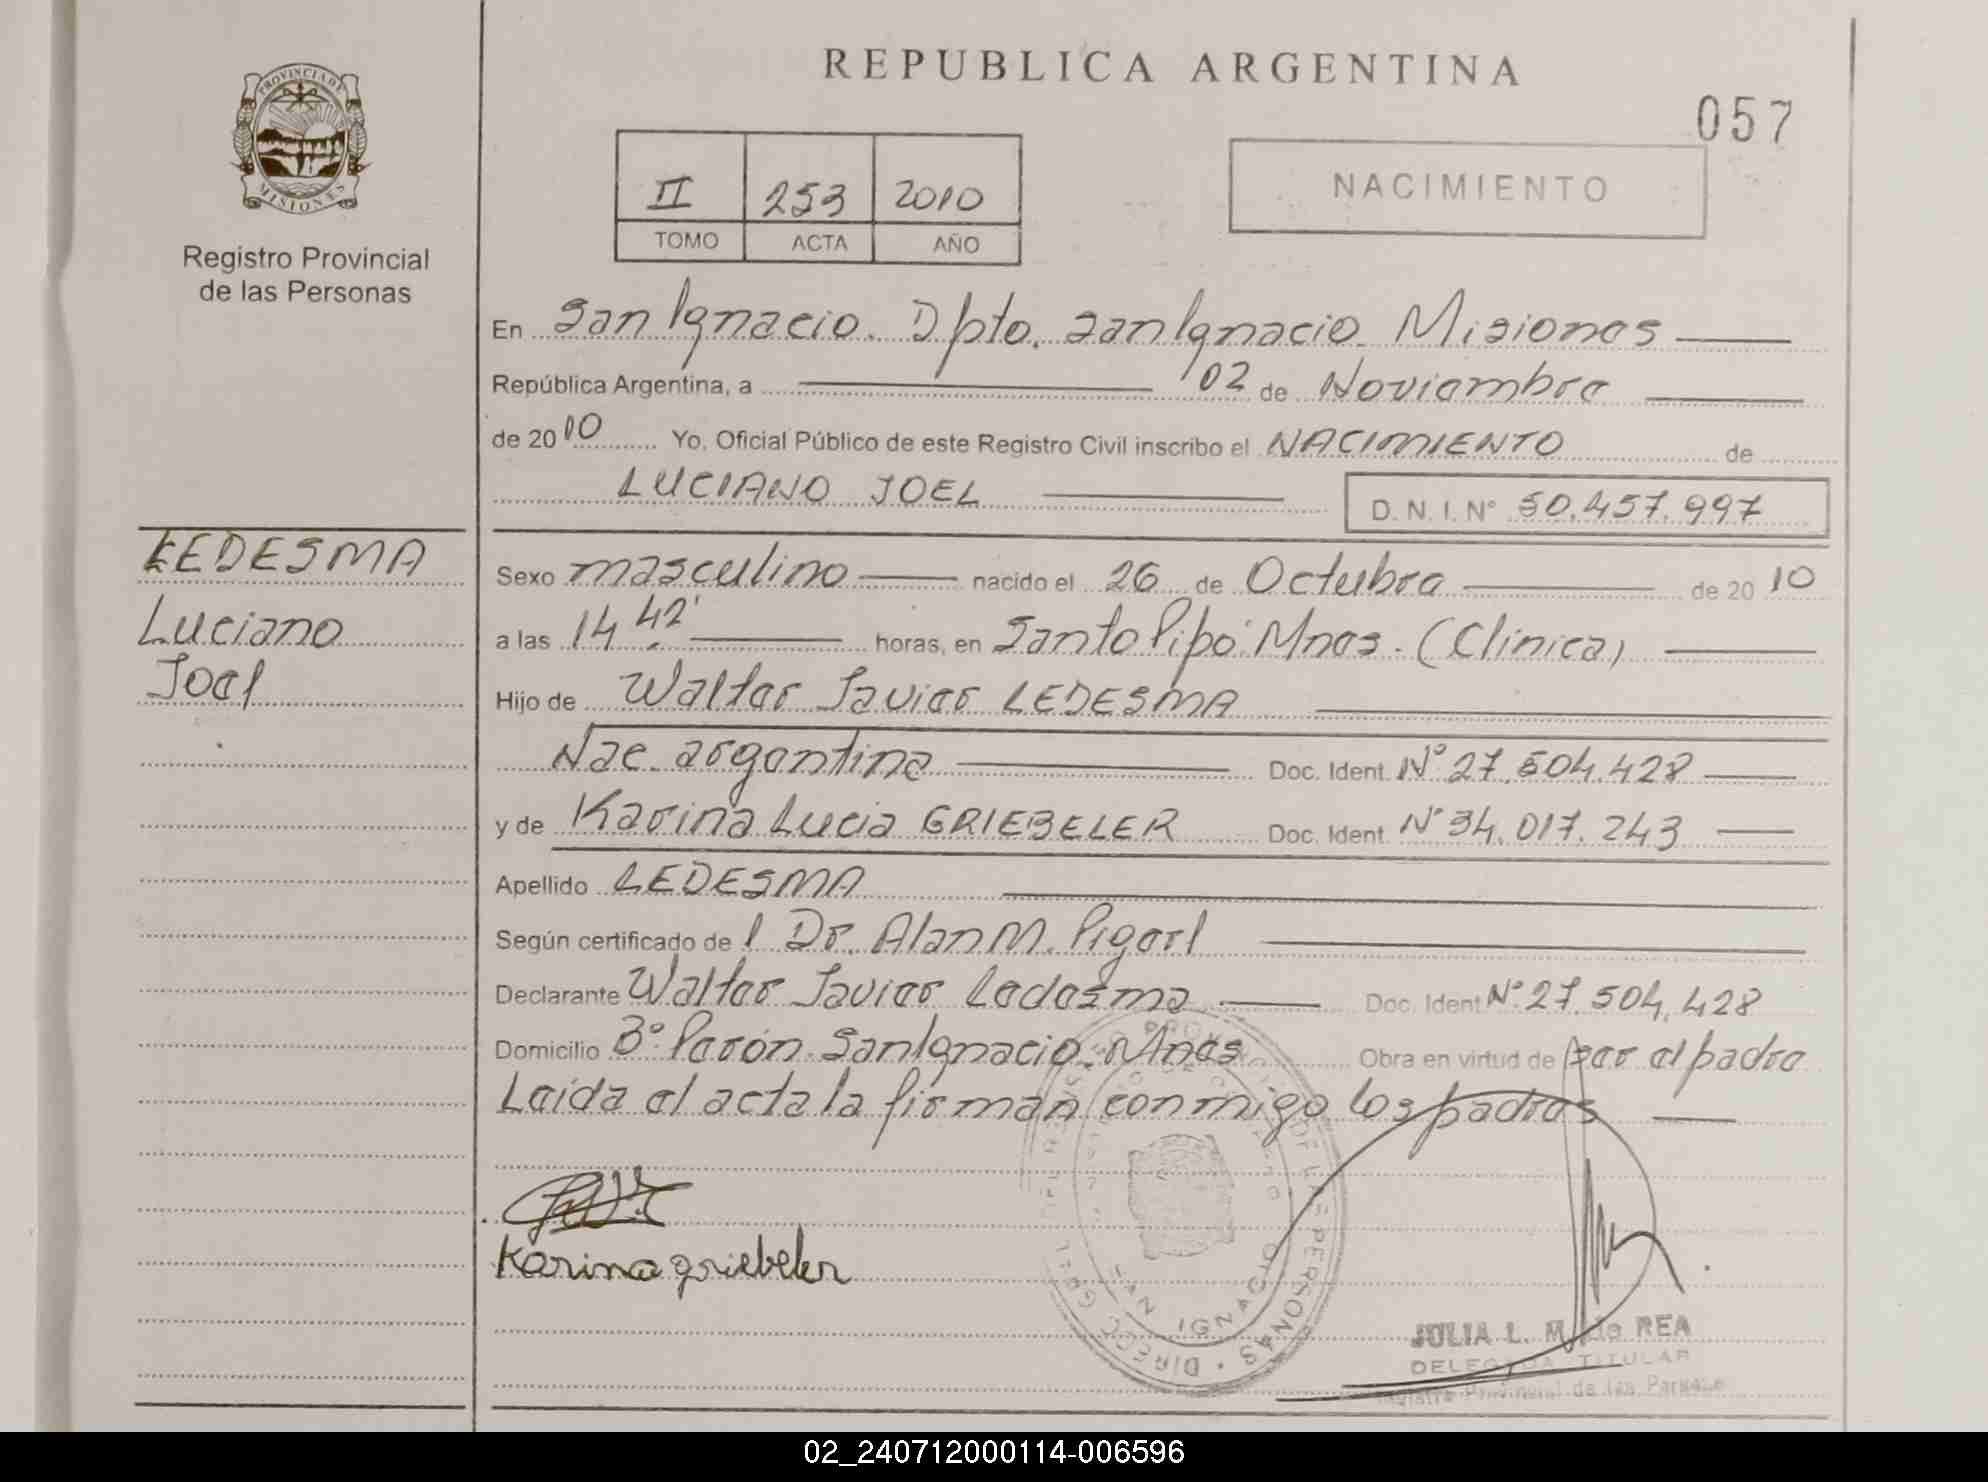 REPUBLICA ARGENTINA
057
PROVINCIA DE
MISIONES
Registro Provincial
de las Personas
II 253 2010
TOMO ACTA AÑO
NACIMIENTO
En San Ignacio. Dpto. San Ignacio. Misiones
República Argentina, a 02 de Noviembre
de 2010 Yo, Oficial Público de este Registro Civil inscribo el NACIMIENTO de
LUCIANO JOEL D.N.I. N° 50.457.997
LEDESMA
Luciano
Joel
Sexo masculino nacido el 26 de Octubre de 2010
a las 14 42' horas, en Santo Pipó Mnes. (Clínica)
Hijo de Walter Javier LEDESMA
Nac. argentina Doc. Ident. N° 27.504.428
y de Karina Lucia GRIEBELER Doc. Ident. N° 34.017.243
Apellido LEDESMA
Según certificado de l Dr. Alan M.
Declarante Walter Javier Ledesma Doc. Ident. N° 27.504.428
Domicilio B° Perón. San Ignacio. Mnes Obra en virtud de ser el padre
Leída el acta la firman conmigo los padres
Karina griebeler
SAN IGNACIO
JULIA L. M. de REA
DELEGADA TITULAR
Registro Provincial de las Personas
02_240712000114-006596